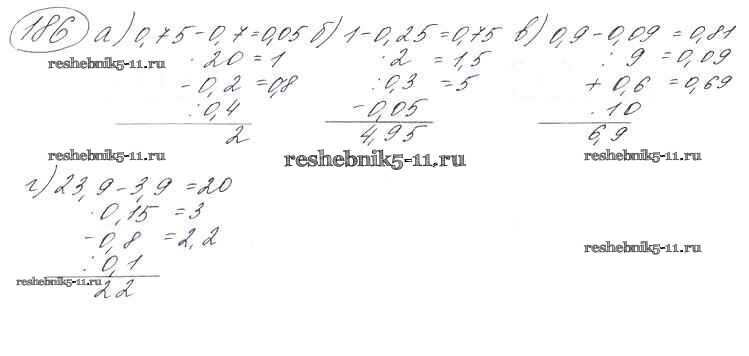 186 а) 0,75-0,7=0,05 б) 1-0,25=0,75 в) 0,9-0,09=0,81
·20=1 ·2=1,5 :9=0,09
reshebnik5-11.ru
-0,2=0,8 :0,3=5 +0,6=0,69
:0,4 -0,05 ·10
2 4,95 6,9
reshebnik5-11.ru reshebnik5-11.ru reshebnik5-11.ru
г) 23,9-3,9=20
·0,15=3
-0,8=2,2
reshebnik5-11.ru
:0,1
reshebnik5-11.ru
22